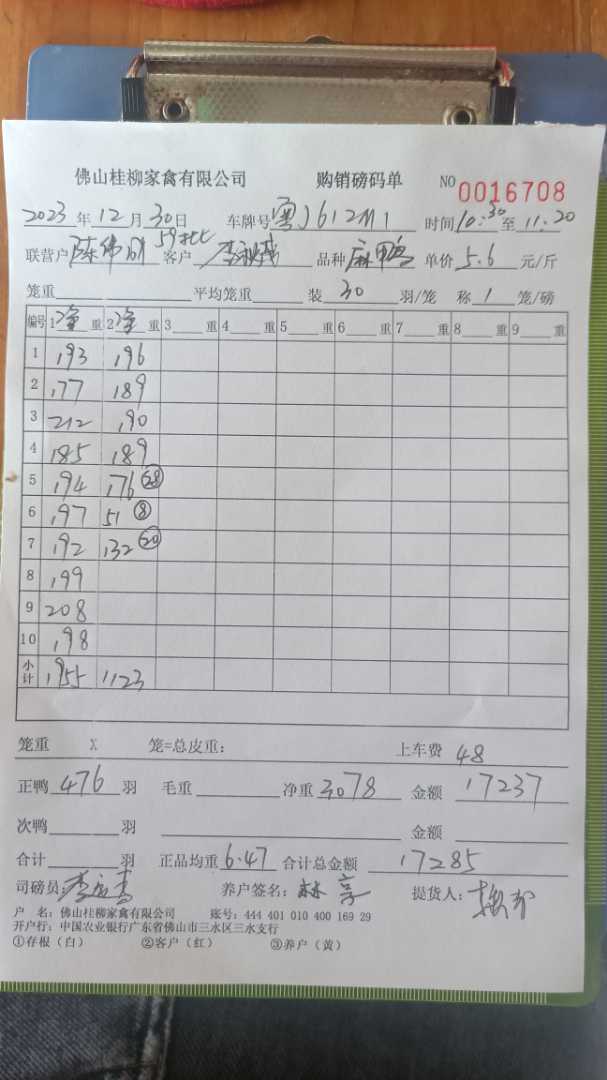 佛山桂柳家禽有限公司 购销磅码单 NO 0016708
2023 年 12 月 30 日 车牌号 粤J612M1 时间 10:30 至 11:20
联营户 陈伟明 59批 客户 品种 麻鸭 单价 5.6 元/斤
笼重 平均笼重 装 30 羽/笼 称 1 笼/磅
编号 1 净 重 2 净 重 3 重 4 重 5 重 6 重 7 重 8 重 9 重
1 193 196
2 177 189
3 212 190
4 185 189
5 194 176 28
6 197 51 8
7 192 132 20
8 199
9 208
10 198
小计 1955 1123
笼重 X 笼=总皮重: 上车费 48
正鸭 476 羽 毛重 净重 3078 金额 17237
次鸭 羽 金额
合计 羽 正品均重 6.47 合计总金额 17285
司磅员: 养户签名: 林 提货人:
户 名: 佛山桂柳家禽有限公司 账号: 444 401 010 400 169 29
开户行: 中国农业银行广东省佛山市三水区三水支行
①存根(白) ②客户(红) ③养户(黄)